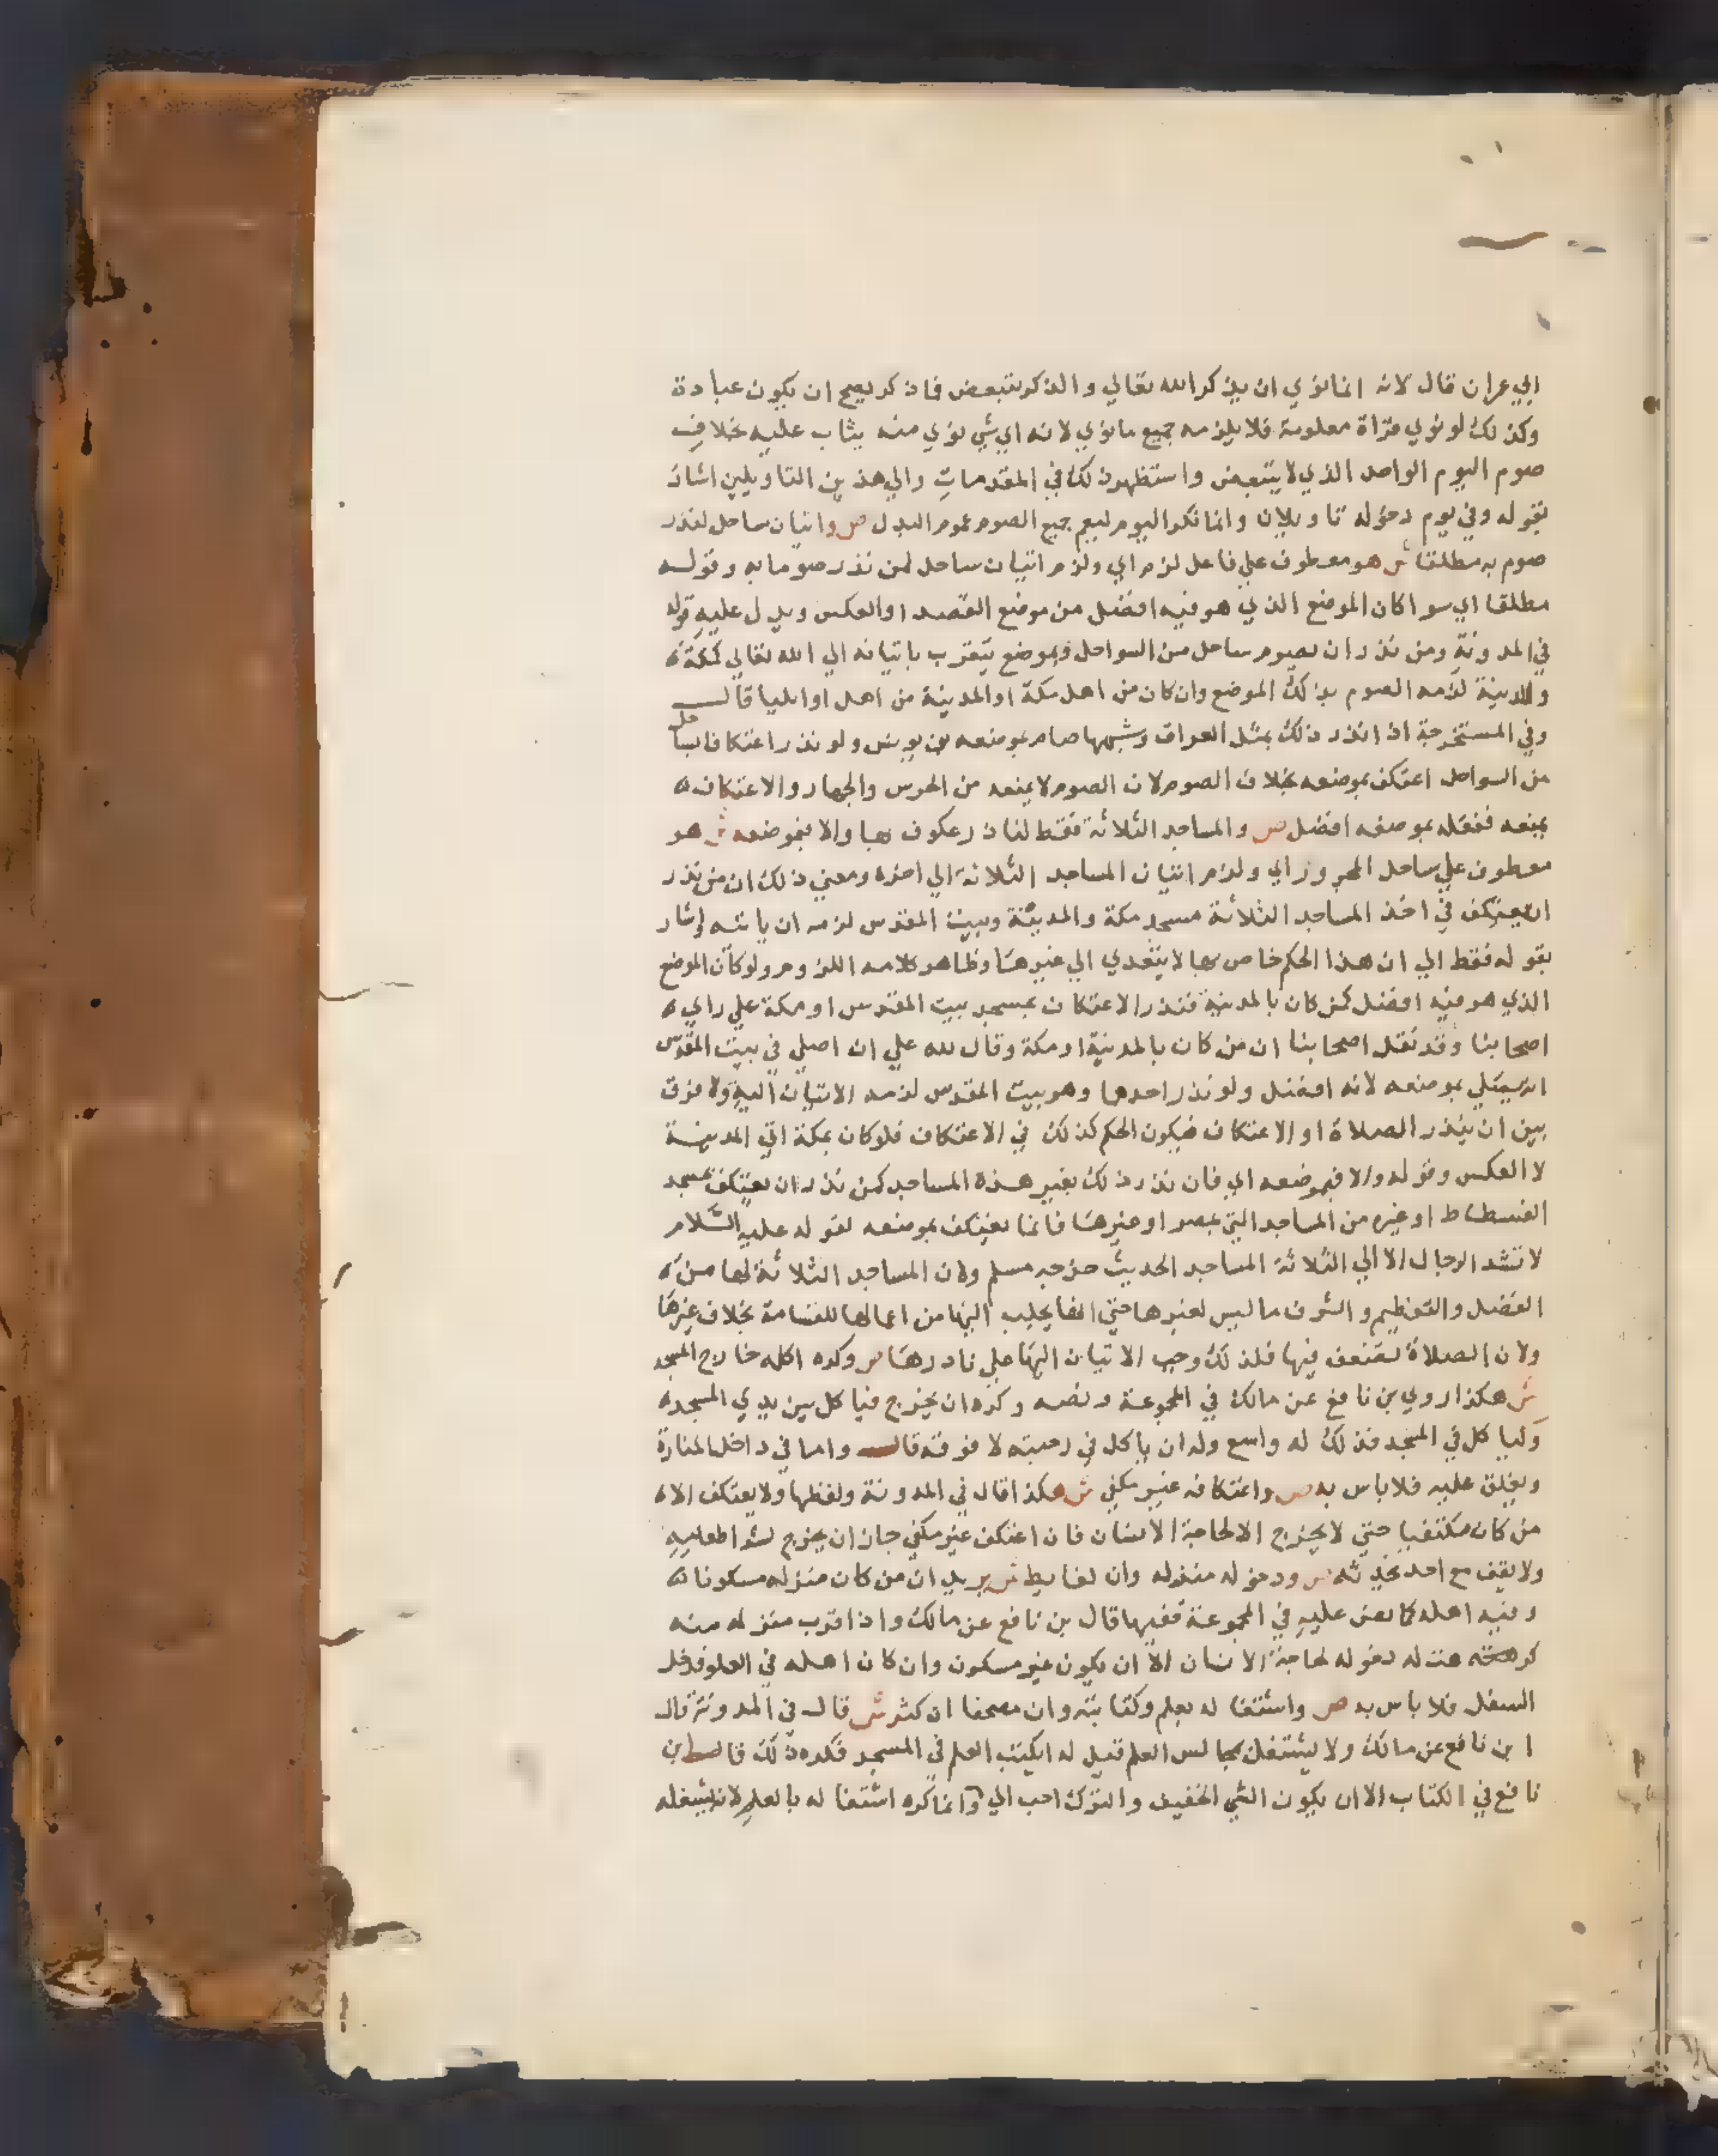 ابي عمران قال لانه انما نوي ان يذكر الله تعالي والذكر يتبعض فاذ كر يصح ان يكون عبادة
وكذلك لو نوي قراة معلومة فلا يلزمه جميع ما نوي لانه اي شي نوي منه يثاب عليه بخلاف
صوم اليوم الواحد الذي لا يتبعض واستظهر ذلك في المقدمات والي هذين التاويلين اشار
بقوله وفي يوم دخوله تاويلان وانما نكر اليوم ليعم جميع الصوم عموم البدل ص واتيان ساحل لنذر
صوم به مطلقا ش هو معطوف علي فاعل لزم اي ولزم اتيان ساحل لمن نذر صوما به وقوله
مطلقا اي سوا كان الموضع الذي هو فيه افضل من موضع القصد او العكس ويدل عليه قوله
في المدونة ومن نذر ان يصوم بساحل من السواحل وبموضع يتقرب باتيانه الي الله تعالي كمكة
والمدينة لزمه الصوم بذلك الموضع وان كان من اهل مكة او المدينة من اهل او ايليا قال
وفي المستخرجة اذا نذر ذلك بمثل العراق وشبهها صام بموضعه بن يونس ولو نذر اعتكافا بساحل
من السواحل اعتكف بموضعه بخلاف الصوم لان الصوم لا يمنعه من الحرس والجهاد والاعتكاف
يمنعه ففعله بموضعه افضل ص والمساجد الثلاثة فقط لناذر عكوف بها والا فبموضعه ش هو
معطوف علي ساحل المجرور اي ولزم اتيان المساجد الثلاثة الي اخره ومعني ذلك ان من نذر
ان يعتكف في احد المساجد الثلاثة مسجد مكة والمدينة وبيت المقدس لزمه ان ياتيه واشار
بقوله فقط الي ان هذا الحكم خاص بها لا يتعدي الي غيرها وظاهر كلامه اللزوم ولو كان الموضع
الذي هو فيه افضل كمن كان بالمدينة فنذر الاعتكاف بمسجد بيت المقدس او مكة علي راي
اصحابنا وقد نقل اصحابنا ان من كان بالمدينة او مكة وقال لله علي ان اصلي في بيت المقدس
انه يصلي بموضعه لانه افضل ولو نذر احدهما وهو ببيت المقدس لزمه الاتيان اليه ولا فرق
بين ان ينذر الصلاة او الاعتكاف فيكون الحكم كذلك في الاعتكاف فلو كان بمكة اتي المدينة
لا العكس وقوله والا فبموضعه اي فان نذر ذلك بغير هذه المساجد كمن نذر ان يعتكف بمسجد
الفسطاط او غيره من المساجد التي بمصر او غيرها فانما يعتكف بموضعه لقوله عليه السلام
لا تشد الرحال الا الي الثلاثة المساجد الحديث خرجه مسلم ولان المساجد الثلاثة لها من
الفضل والتعظيم والشرف ما ليس لغيرها حتي انها يجلب اليها من اعمالها للقسامة بخلاف غيرها
ولان الصلاة تضعف فيها فلذلك وجب الاتيان اليها علي ناذرها ص وكره اكله خارج المسجد
ش هكذا روي بن نافع عن مالك في المجموعة ونصه وكره ان يخرج فياكل بين يدي المسجد
ولياكل في المسجد فذلك له واسع وله ان ياكل في رحبته لا فوقه قال واما في داخل المنارة
ويغلق عليه فلا باس به ص واعتكافه غير مكفي ش هكذا قال في المدونة ولفظها ولا يعتكف الا
من كان مكتفيا حتي لا يخرج الا لحاجة الانسان فان اعتكف غير مكفي جاز ان يخرج لشرا طعامه
ولا يقف مع احد يحدثه ص ودخوله منزله وان لغايط ش يريد ان من كان منزله مسكونا
وفيه اهله كما نص عليه في المجموعة ففيها قال بن نافع عن مالك واذا قرب منزله منه
كرهت له دخوله لحاجة الانسان الا ان يكون غير مسكون وان كان اهله في العلو فدخل
السفل فلا باس به ص واشتغاله بعلم وكتابته وان مصحفا ان كثر ش قال في المدونة قال
ابن نافع عن مالك ولا يشتغل بمجالس العلم قيل له ايكتب العلم في المسجد فكره ذلك قال ابن
نافع في الكتاب الا ان يكون الشي الخفيف والترك احب الي وانما كره اشتغاله بالعلم لانه يشغله